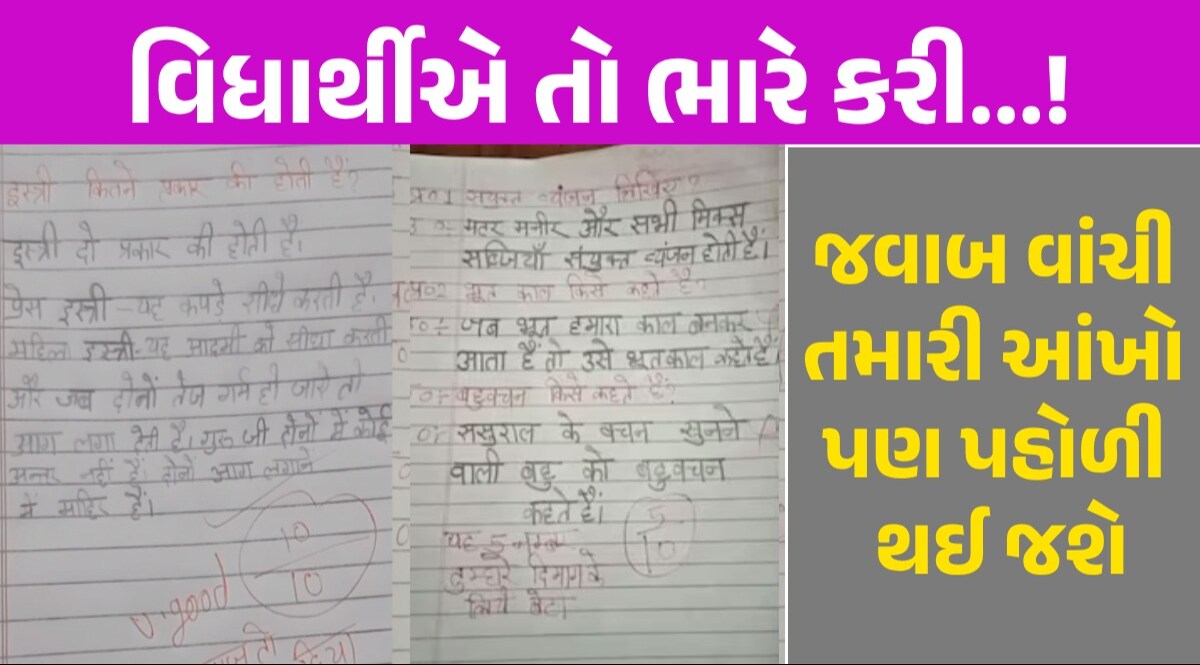 વિધાર્થીએ તો ભારે કરી...!
इस्त्री कितने प्रकार की होती हैं?
इस्त्री दो प्रकार की होती है।
प्रेस इस्त्री - यह कपड़े सीधे करती है,
महिला इस्त्री- यह आदमी को सीधा करती
और जब दोनों तेज गर्म हो जाये तो
आग लगा देती है। गुरु जी दोनों में कोई
अन्तर नहीं हैं। दोनों आग लगाने
में माहिर हैं।
10
10
v.good
प्र०1 सयुक्त व्यंजन लिखिए?
उ०:- मटर मनीर और सभी मिक्स
सब्जियाँ संयुक्त व्यंजन होती हैं।
प्र०2 भूत काल किसे कहते हैं?
उ०:- जब भूत हमारा काल बनकर
आता हैं तो उसे भूतकाल कहते हैं
बहुवचन किसे कहते हैं?
ससुराल के वचन सुनने
वाली बहु को बहुवचन
कहते हैं।
5
10
यह 5 नम्बर
तुम्हारे दिमाग के
लिये बेटा
જવાબ વાંચી
તમારી આંખો
પણ પહોળી
થઈ જશે